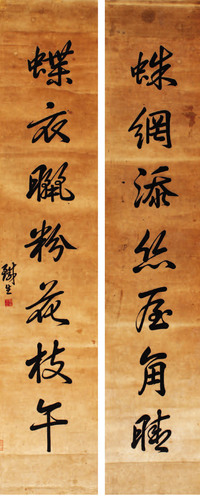 蛛網添絲屋角晴
蝶衣臘粉花枝午
鐵生